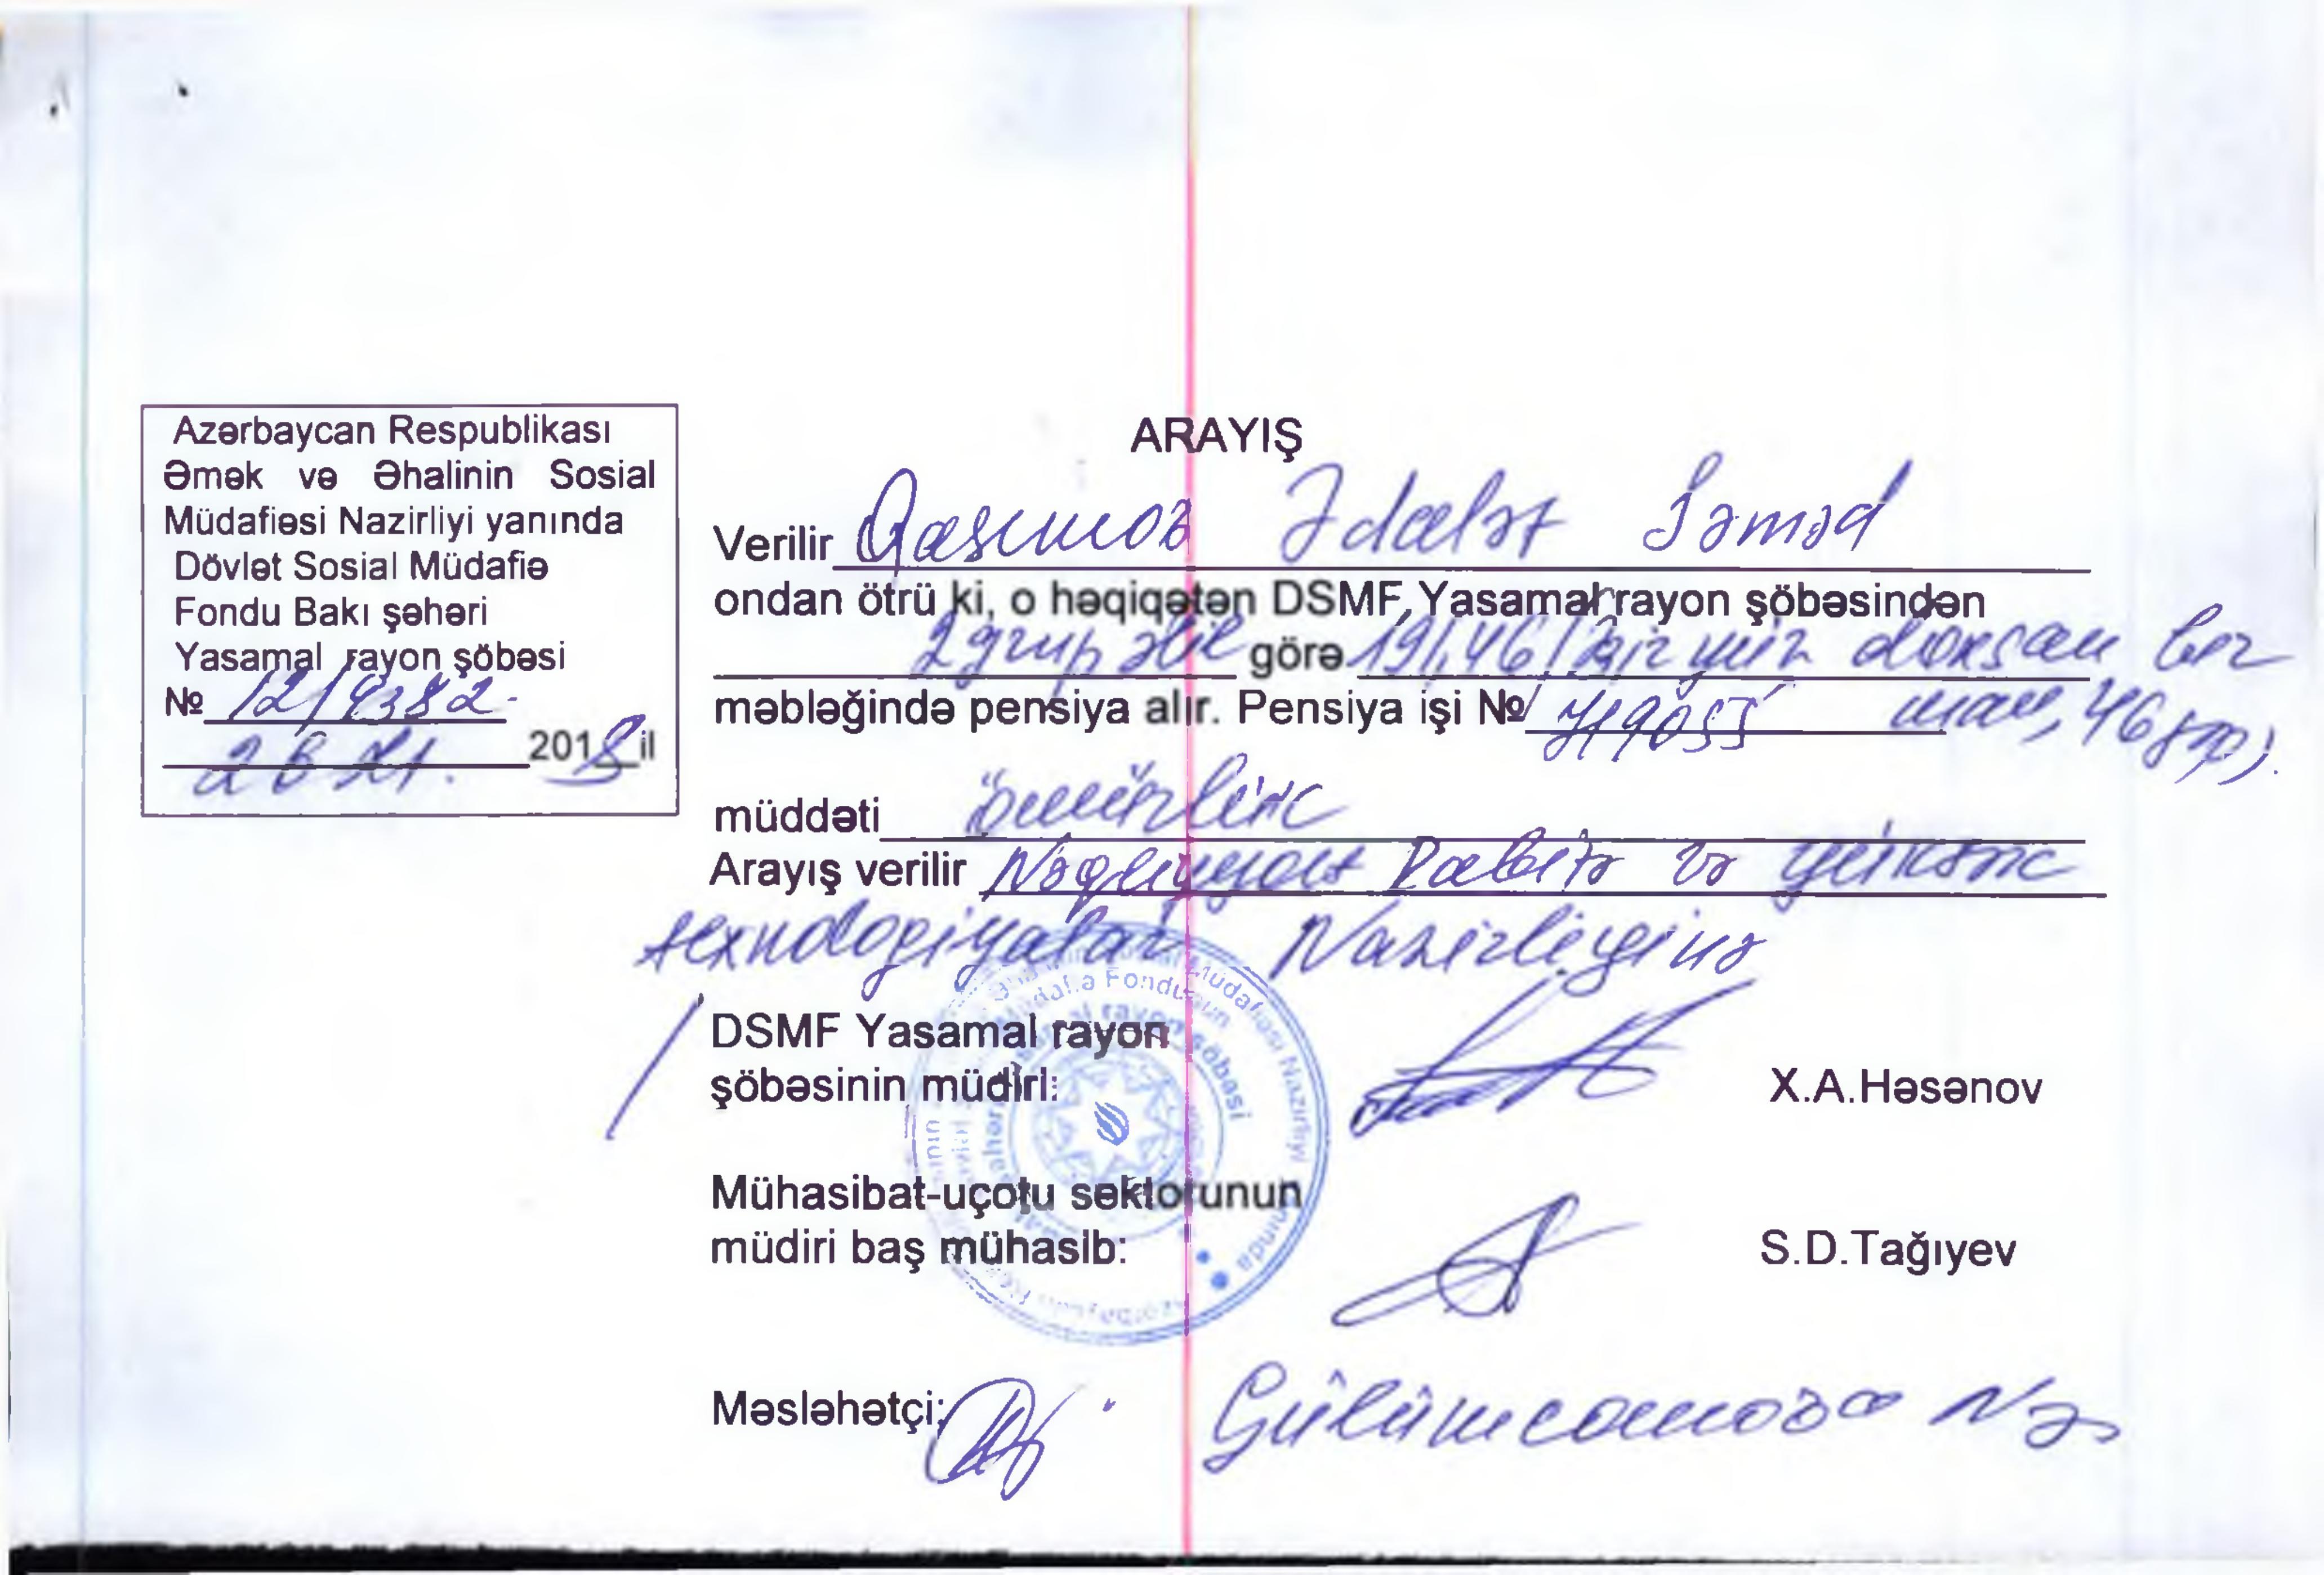 Azərbaycan Respublikası
Əmək və Əhalinin Sosial
Müdafiəsi Nazirliyi yanında
Dövlət Sosial Müdafiə
Fondu Bakı şəhəri
Yasamal rayon şöbəsi
№ 12/4382-
2018 il
ARAYIŞ
Verilir Qasımov Ədalət Səməd
ondan ötrü ki, o həqiqətən DSMF Yasamal rayon şöbəsindən
2 qrup əlil görə 191,46 (bir yüz doxsan bir
məbləğində pensiya alır. Pensiya işi № 719055 man, 46 qəp).
müddəti ömürlük
Arayış verilir Nəqliyyat Rabitə və yüksək
texnologiyalar Nazirliyinə
DSMF Yasamal rayon
şöbəsinin müdiri:
X.A.Həsənov
Mühasibat-uçotu sektorunun
müdiri baş mühasib:
S.D.Tağıyev
Məsləhətçi: